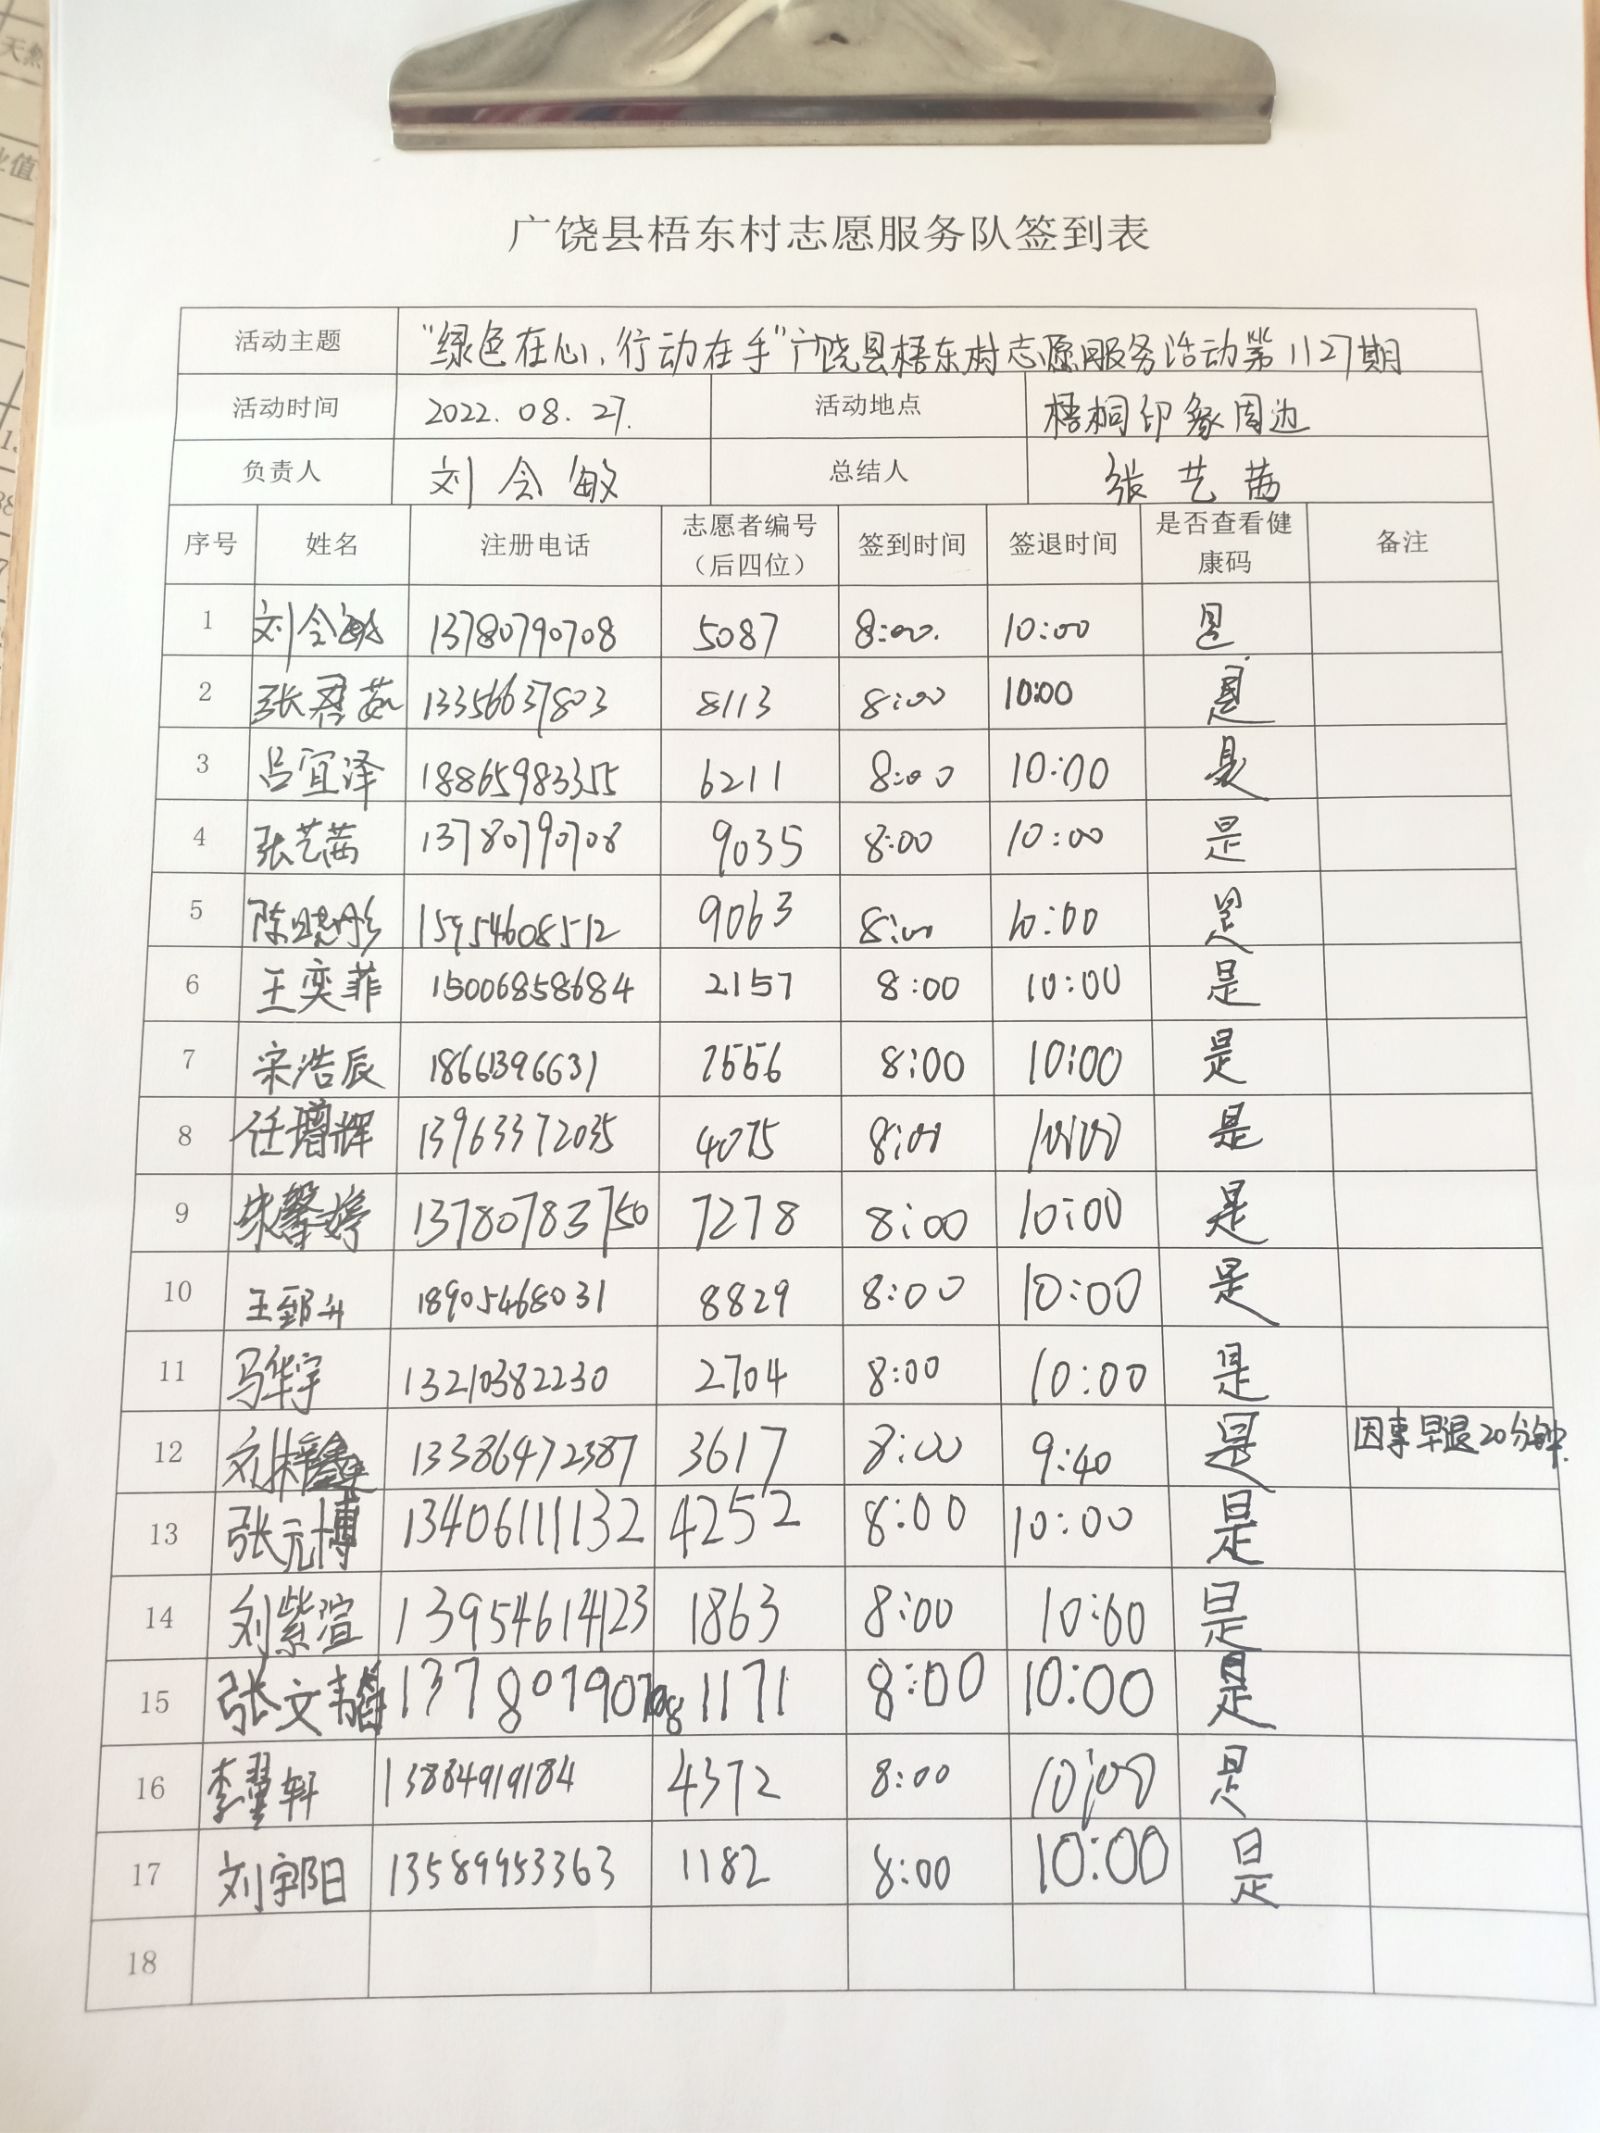 广饶县梧东村志愿服务队签到表
活动主题 “绿色在心、行动在手”广饶县梧东村志愿服务活动第1127期
活动时间 2022.08.27. 活动地点 梧桐印象周边
负责人 刘会敏 总结人 张艺茜
序号 姓名 注册电话 志愿者编号（后四位） 签到时间 签退时间 是否查看健康码 备注
1 刘会敏 13780790708 5087 8:00. 10:00 是
2 张君茹 13356637803 8113 8:00 10:00 是
3 吕宜泽 18865983355 6211 8:00 10:00 是
4 张艺茜 13780790708 9035 8:00 10:00 是
5 陈晓彤 15954608512 9063 8:00 10:00 是
6 王奕菲 15006858684 2157 8:00 10:00 是
7 宋浩辰 18661396631 7556 8:00 10:00 是
8 任增辉 13963372035 4075 8:00 10:00 是
9 朱馨婷 13780783750 7278 8:00 10:00 是
10 18905468031 8829 8:00 10:00 是
11 马华宇 13210382230 2704 8:00 10:00 是
12 13386472387 3617 8:00 9:40 是 因事早退20分钟.
13 张元博 13406111132 4252 8:00 10:00 是
14 刘紫渲 13954614123 1863 8:00 10:00 是
15 张文韬 13780790708 1171 8:00 10:00 是
16 13884919184 4372 8:00 10:00 是
17 刘宇阳 13589953363 1182 8:00 10:00 是
18
天然
业值